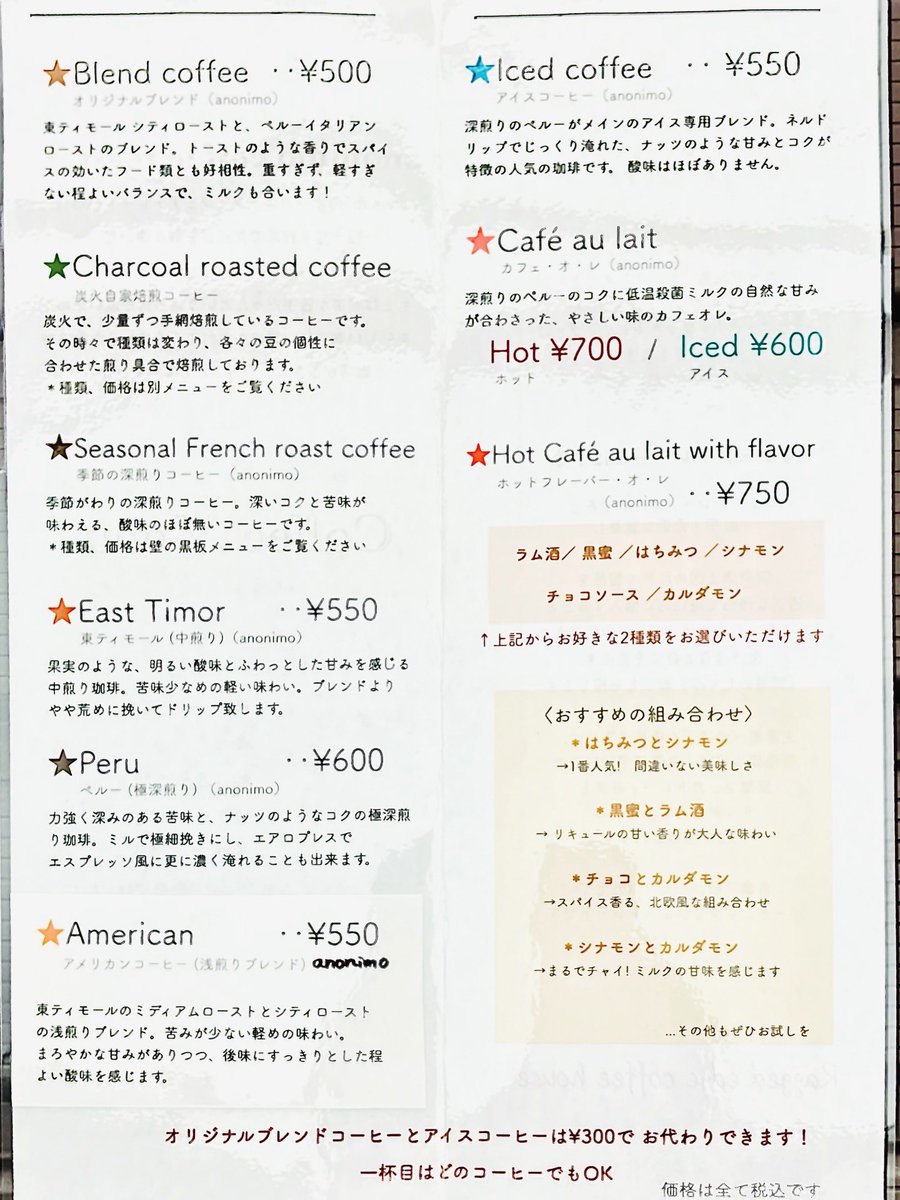 ★Blend coffee ‥¥500
オリジナルブレンド（anonimo）
東ティモール シティローストと、ペルーイタリアン
ローストのブレンド。トーストのような香りでスパイ
スの効いたフード類とも好相性。重すぎず、軽すぎ
ない程よいバランスで、ミルクも合います！
★Charcoal roasted coffee
炭火自家焙煎コーヒー
炭火で、少量ずつ手網焙煎しているコーヒーです。
その時々で種類は変わり、各々の豆の個性に
合わせた煎り具合で焙煎しております。
＊種類、価格は別メニューをご覧ください
★Seasonal French roast coffee
季節の深煎りコーヒー（anonimo）
季節がわりの深煎りコーヒー。深いコクと苦味が
味わえる、酸味のほぼ無いコーヒーです。
＊種類、価格は壁の黒板メニューをご覧ください
★East Timor ‥¥550
東ティモール (中煎り)（anonimo）
果実のような、明るい酸味とふわっとした甘みを感じる
中煎り珈琲。苦味少なめの軽い味わい。ブレンドより
やや荒めに挽いてドリップ致します。
★Peru ‥¥600
ペルー (極深煎り)（anonimo）
力強く深みのある苦味と、ナッツのようなコクの極深煎
り珈琲。ミルで極細挽きにし、エアロプレスで
エスプレッソ風に更に濃く淹れることも出来ます。
★American ‥¥550
アメリカンコーヒー (浅煎りブレンド) anonimo
東ティモールのミディアムローストとシティロースト
の浅煎りブレンド。苦みが少ない軽めの味わい。
まろやかな甘みがありつつ、後味にすっきりとした程
よい酸味を感じます。
★Iced coffee ‥ ¥550
アイスコーヒー（anonimo）
深煎りのペルーがメインのアイス専用ブレンド。ネルド
リップでじっくり淹れた、ナッツのような甘みとコクが
特徴の人気の珈琲です。 酸味はほぼありません。
★Café au lait
カフェ・オ・レ（anonimo）
深煎りのペルーのコクに低温殺菌ミルクの自然な甘み
が合わさった、やさしい味のカフェオレ。
Hot ¥700 / Iced ¥600
ホット アイス
★Hot Café au lait with flavor
ホットフレーバー・オ・レ
（anonimo） ‥¥750
ラム酒／ 黒蜜 ／はちみつ ／シナモン
チョコソース ／カルダモン
↑上記からお好きな2種類をお選びいただけます
〈おすすめの組み合わせ〉
＊はちみつとシナモン
→1番人気! 間違いない美味しさ
＊黒蜜とラム酒
→ リキュールの甘い香りが大人な味わい
＊チョコとカルダモン
→スパイス香る、北欧風な組み合わせ
＊シナモンとカルダモン
→まるでチャイ! ミルクの甘味を感じます
...その他もぜひお試しを
オリジナルブレンドコーヒーとアイスコーヒーは¥300で お代わりできます！
一杯目はどのコーヒーでもOK
価格は全て税込です